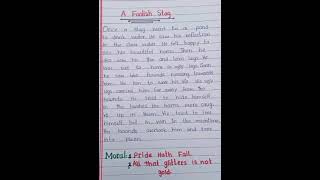 A Foolish Stag
Once a stag went to a pond
to drink water. He saw his reflection
in the clear water. He felt happy to
see his beautiful horns. Then he
also saw his thin and long legs. He
was sad to have so ugly legs. Soon
he saw two hounds running towards
him. He ran to save his life. His ugly
legs carried him far away from the
hounds. He tried to hide himself
in the bushes. His horns were caught
up in them. He tried to free
himself but in vain. In the meantime
the hounds overtook him and tore
into pieces.
Moral: Pride Hath Fall
All that glitters is not
gold